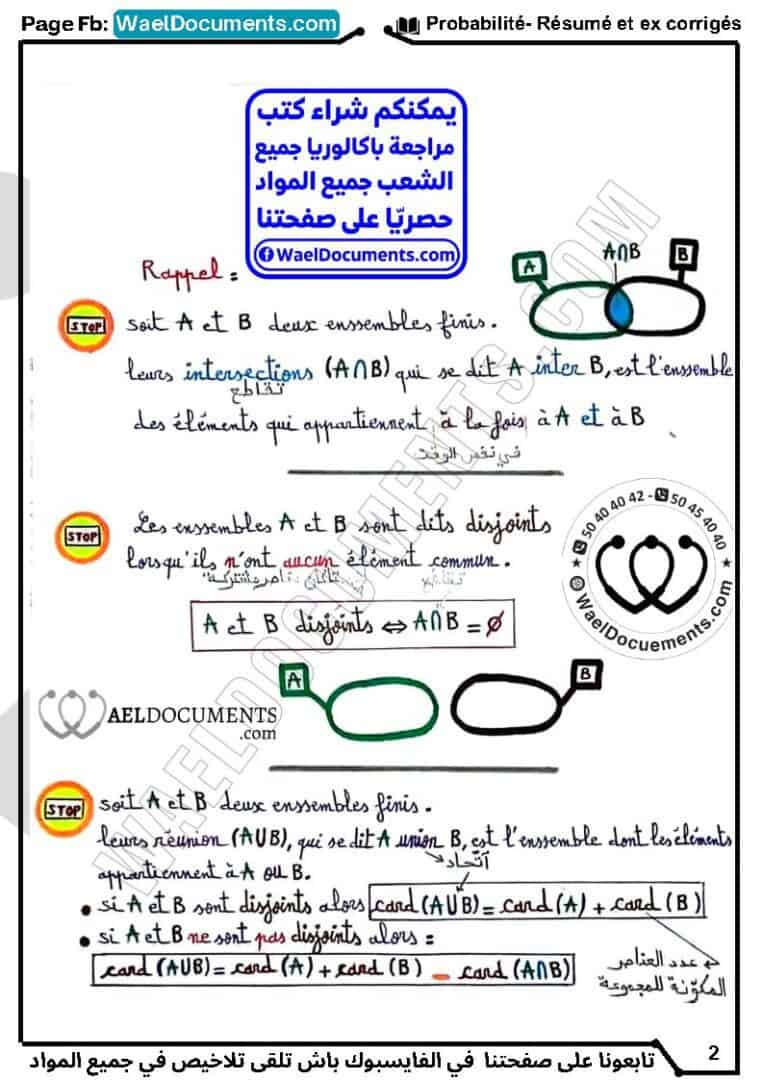 Page Fb: WaelDocuments.com
Probabilité- Résumé et ex corrigés
يمكنكم شراء كتب
مراجعة باكالوريا جميع
الشعب جميع المواد
حصريّا على صفحتنا
WaelDocuments.com
Rappel :
A
A∩B
B
STOP
soit A et B deux enssembles finis.
leurs intersections (A∩B) qui se dit A inter B, est l'enssemble
تقاطع
des éléments qui appartiennent à la fois à A et à B
في نفس الوقت
STOP
Les enssembles A et B sont dits disjoints
lorsqu'ils n'ont aucun élément commun.
A et B disjoints ⇔ A∩B = ∅
50 40 40 42 - 50 45 40 40
WaelDocuements.com
A
B
WAELDOCUMENTS
.com
WAELDOCUMENTS.COM
STOP
soit A et B deux enssembles finis.
leurs réunion (A∪B), qui se dit A union B, est l'enssemble dont les éléments
اتّحاد
appartiennent à A ou B.
• si A et B sont disjoints alors card (A∪B) = card (A) + card (B)
• si A et B ne sont pas disjoints alors :
card (A∪B) = card (A) + card (B) - card (A∩B)
عدد العناصر
المكوّنة للمجموعة
تابعونا على صفحتنا في الفايسبوك باش تلقى تلاخيص في جميع المواد
2